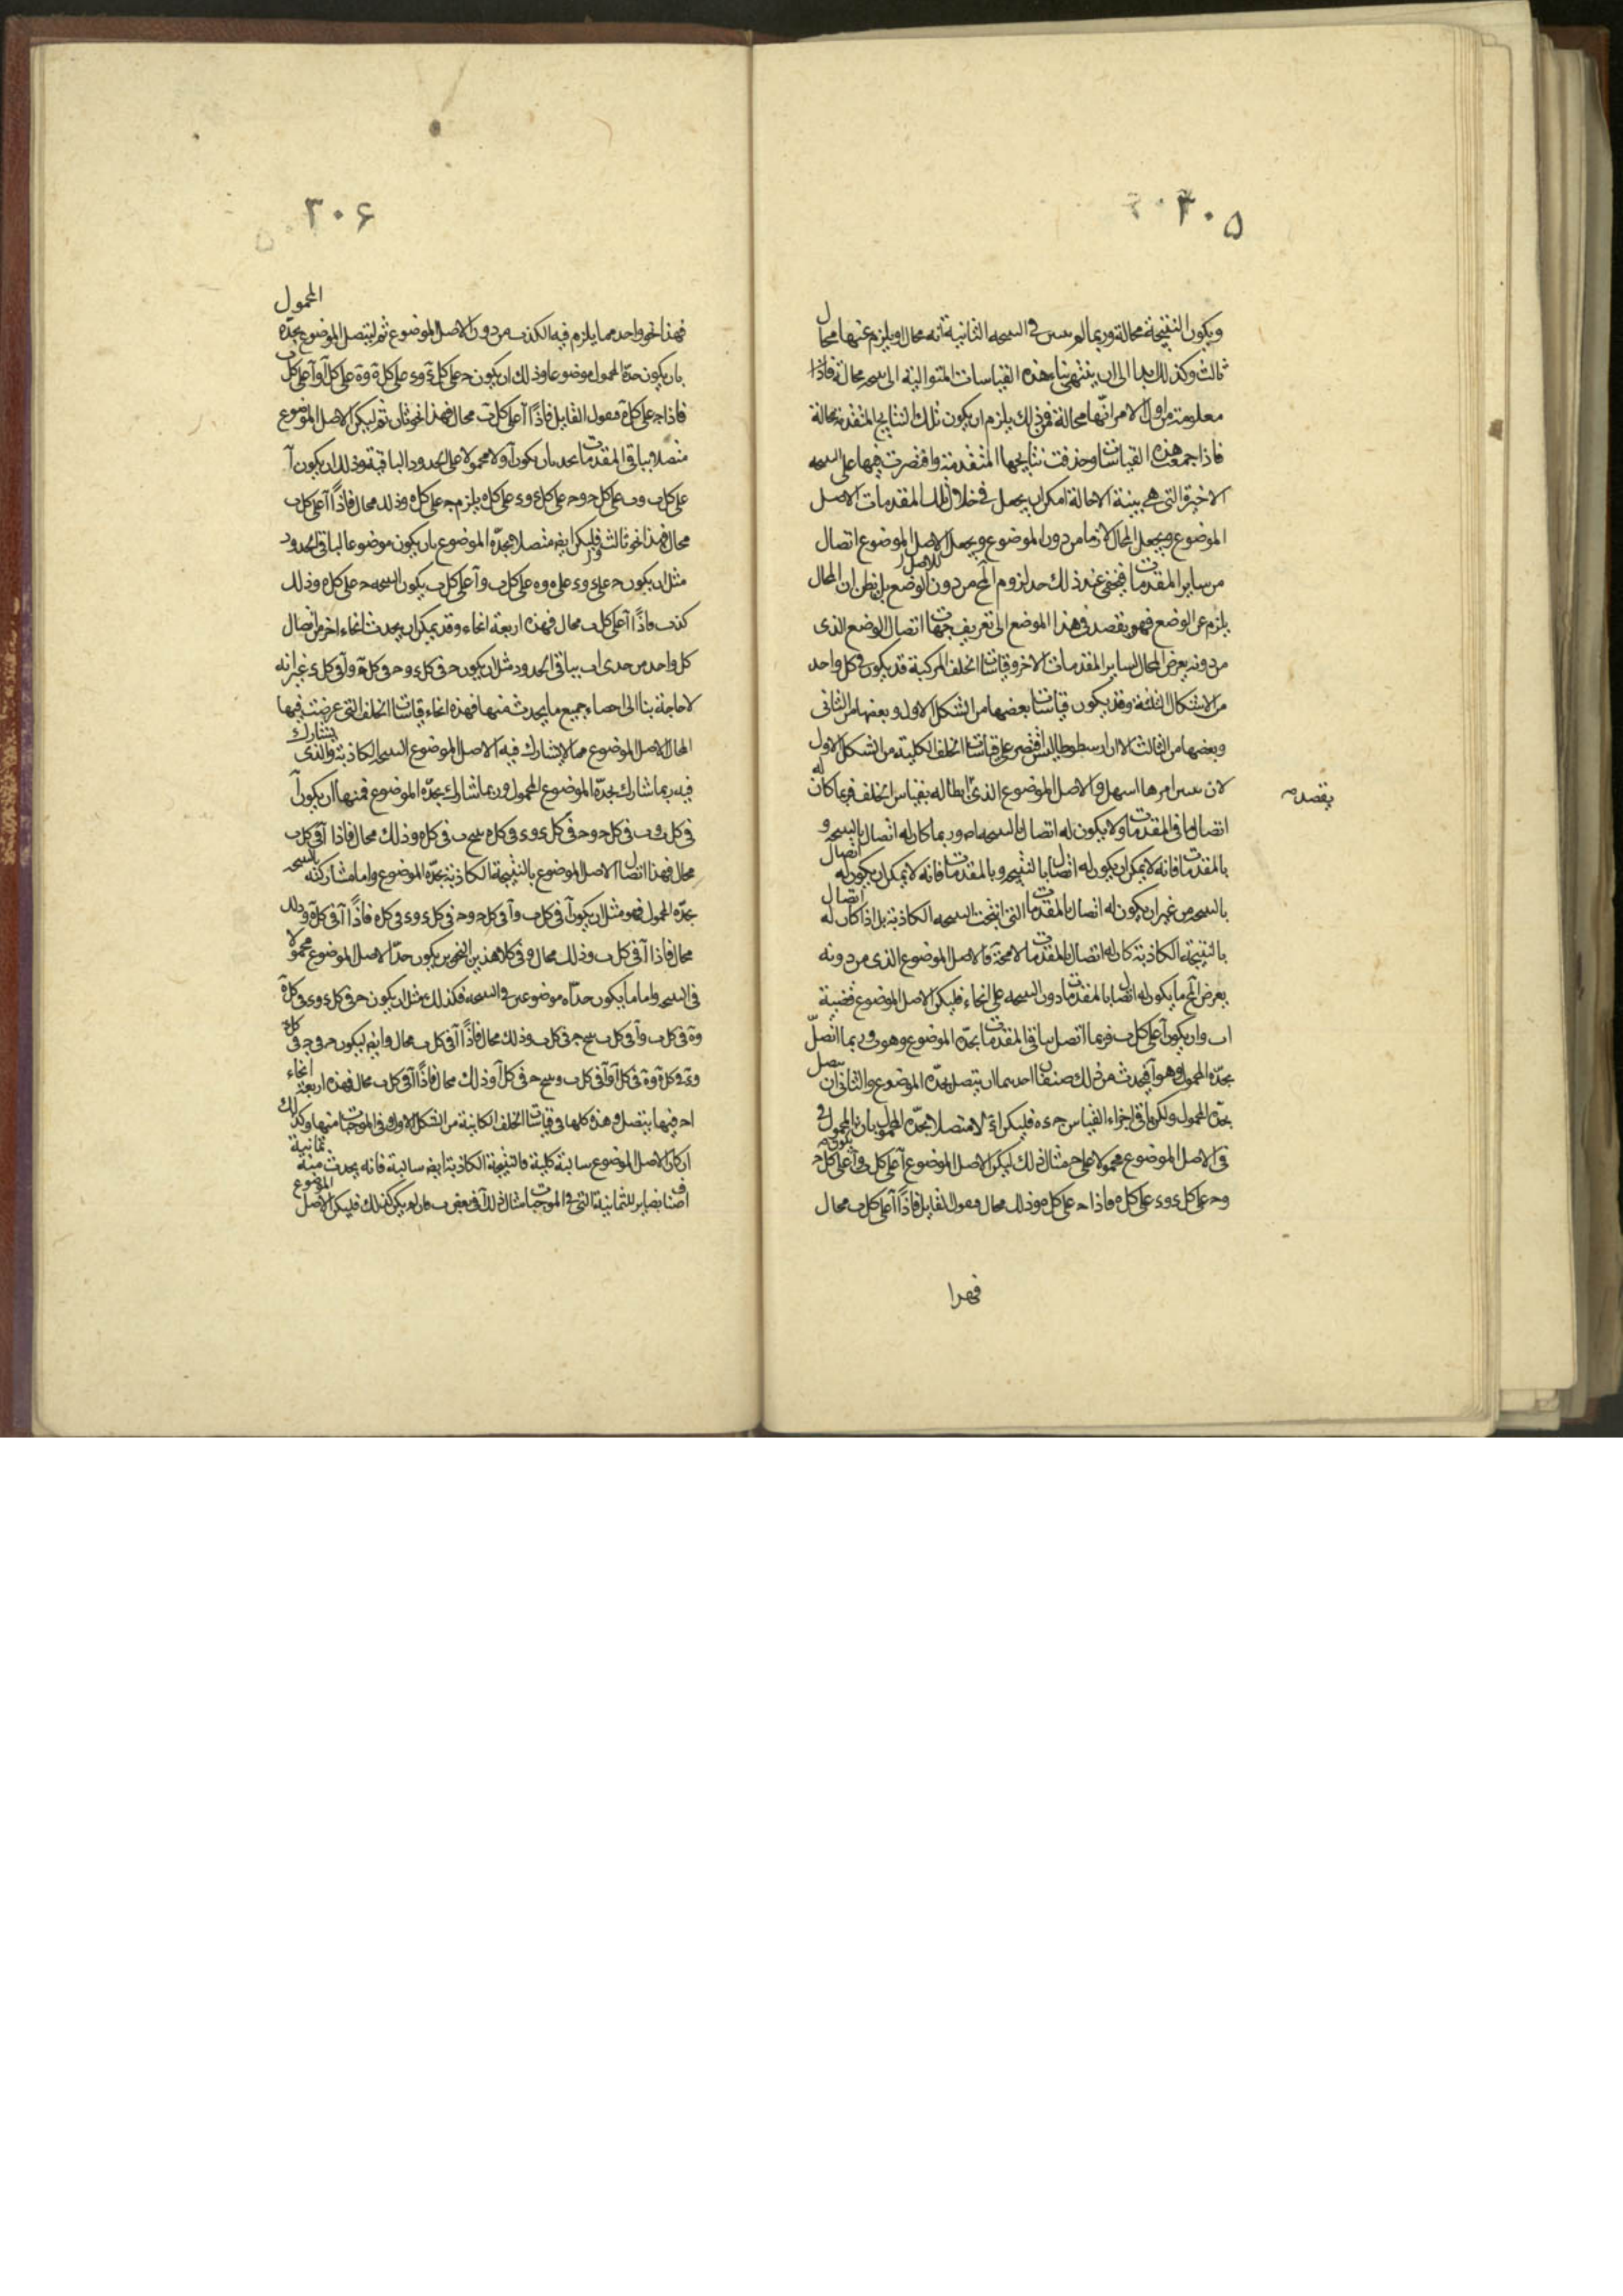 ٣٠٥
ويكون النتيجة محالة وربما لم يتبين فى النتيجه الثانية انه محال ويلزم عنها محال
ثالث وكذلك ابدا الى ان ينتهى بناء هذه القياسات المتوالية الى نتيجه محالة فاذا
معلومة من اول الامر انها محالة فمن ذلك يلزم ان يكون تلك النتايج المتقدمة محالة
فاذا جمعت هذه القياسات وحذفت نتايجها المتقدمة واقتصرت فيها على النتيجه
الاخيرة التى هى بينة الاحالة امكن ان يجعل فى خلال تلك المقدمات الاصل
الموضوع ويجعل المحال لازما من دون الموضوع ويجعل للاصل الموضوع اتصال
من ساير المقدمات فيخفى عند ذلك حد لزوم المح من دون الوضع بل يظن ان المحال
يلزم عن الوضع فهو يقصد فى هذا الموضع الى تعريف جهات اتصال الوضع الذى
من دونه يعرض المحال لساير المقدمات الاخر وقياسات الخلف المركبة قد يكون فى كل واحد
من الاشكال الثلثة وقد يكون قياسات بعضها من الشكل الاول وبعضها من الثانى
وبعضها من الثالث الا ان ارسطوطاليس اقتصر على قياسات الخلف الكلية من الشكل الاول
لان تبين امرها اسهل والاصل الموضوع الذى ابطاله بقياس الخلف فربما كان له
يقصد
اتصال باقى المقدمات ولا يكون له اتصال بالنتيجه وربما كان له اتصال بالنتيجه و
بالمقدمات فانه لا يمكن ان يكون له اتصال بالنتيجه وبالمقدمات فانه لا يمكن ان يكون له اتصال
بالنتيجه من غير ان يكون له اتصال بالمقدمات التى انتجت النتيجه الكاذبة بل اذا كان له اتصال
بالنتيجة الكاذبة كان له اتصال بالمقدمات لا محة فالاصل الموضوع الذى من دونه
يعرض المح ما يكون له اتصال بالمقدمات دون النتيجه على انحاء فليكن الاصل الموضوع قضية
اب وان يكون آ على كل ب فربما اتصل بباقى المقدمات بحده الموضوع وهو ب وربما اتصل
بحده المحمول وهو آ فيحدث من ذلك صنفان احدهما ان يتصل بحده الموضوع والثانى ان يتصل
بحده المحمول ولكن باقى اجزاء القياس ج ء ه فليكن اولا متصلا بحده المحمول بان يكون المحمول
فى الاصل الموضوع محمولا على ج مثال ذلك ليكن الاصل الموضوع آ على كل ب وآ على كل ج
وج على كل ء وء على كل ه فاذا ج على كل ه وذلك محال فيقول القايل فاذًا آ على كل ب محال
فهذا
٣٠۶
فهذا نحو واحد مما يلزم فيه الكذب من دون الاصل الموضوع ثم ليتصل الموضوع بحده المحمول
بان يكون حده المحمول موضوعا وذلك ان يكون ج على كل ء وء على كل ة وة على كل آ وآ على كل ب
فاذا ج على كل ة فيقول القايل فاذًا آ على كل ب محال فهذا نحو ثان ثم ليكن الاصل الموضوع
متصلا بباقى المقدمات بحد بان يكون آ ولا محمولا على الحدود الباقية وذلك ان يكون آ
على كل ب وب على كل ج وج على كل ء وء على كل ه يلزم ج على كل ه وذلك محال فاذًا آ على كل ب
محال فهذا نحو ثالث وليكن ايضا متصلا بحده الموضوع بان يكون موضوعا لباقى الحدود
مثل ان يكون ج على ء وء على ه وه على كل ب وآ على كل ب يكون النتيجه ج على كل ه وذلك
كذب فاذًا آ على كل ب محال فهذه اربعة انحاء وقد يمكن ان يحدث انحاء اخر من اتصال
كل واحد من حدى اب بباقى الحدود مثل ان يكون ج فى كل ء وج فى كل ة وآ فى كل ء غير انه
لا حاجة بنا الى احصاء جميع ما يحدث منها فهذه انحاء قياسات الخلف التى عرضت فيها
المحال للاصل الموضوع مما لا يشارك فيه الاصل الموضوع النتيجه الكاذبة والذى يتشارك
فيه ربما شارك بحده الموضوع المحمول وربما شارك بحده الموضوع فمنها ان يكون آ
فى كل ب وب فى كل ج وج فى كل ء وء فى كل ه ينتج ب فى كل ه وذلك محال فاذا آ فى كل ب
محال فهذا اتصال الاصل الموضوع بالنتيجة الكاذبة بحده الموضوع واما مشاركته بالنتيجه
بحده المحمول فهو مثل ان يكون آ فى كل ب وآ فى كل ج وج فى كل ء وء فى كل ه فاذًا آ فى كل ة وذلك
محال فاذا آ فى كل ب وذلك محال وفى كلا هذين النحوين يكون حد الاصل الموضوع محمولا
فى النتيجه واما ما يكون حداه موضوعين فى النتيجه فكذلك مثل ان يكون ج فى كل ء وء فى كل ة
وة فى كل ب وآ فى كل ب ينتج ج فى كل ب وذلك محال فاذًا آ فى كل ب محال وايضا ليكون ج فى كل
وء فى كل ة وة فى كل آ وآ فى كل ب وينتج ج فى كل آ وذلك محال فاذًا آ فى كل ب محال فهذه اربعة انحاء
اخر فيها يتصل وهذه كلها فى قياسات الخلف الكاينة من الشكل الاول وفى الموجبات منها وكذلك
ان كان الاصل الموضوع سالبة كلية فالنتيجة الكاذبة ايضا سالبة فانه يحدث منه ثمانية
اصناف نظاير للثمانية التى فى الموجبات مثال ذلك آ فى بعض ب فان لم يكن كذلك فليكن الاصل الموضوع